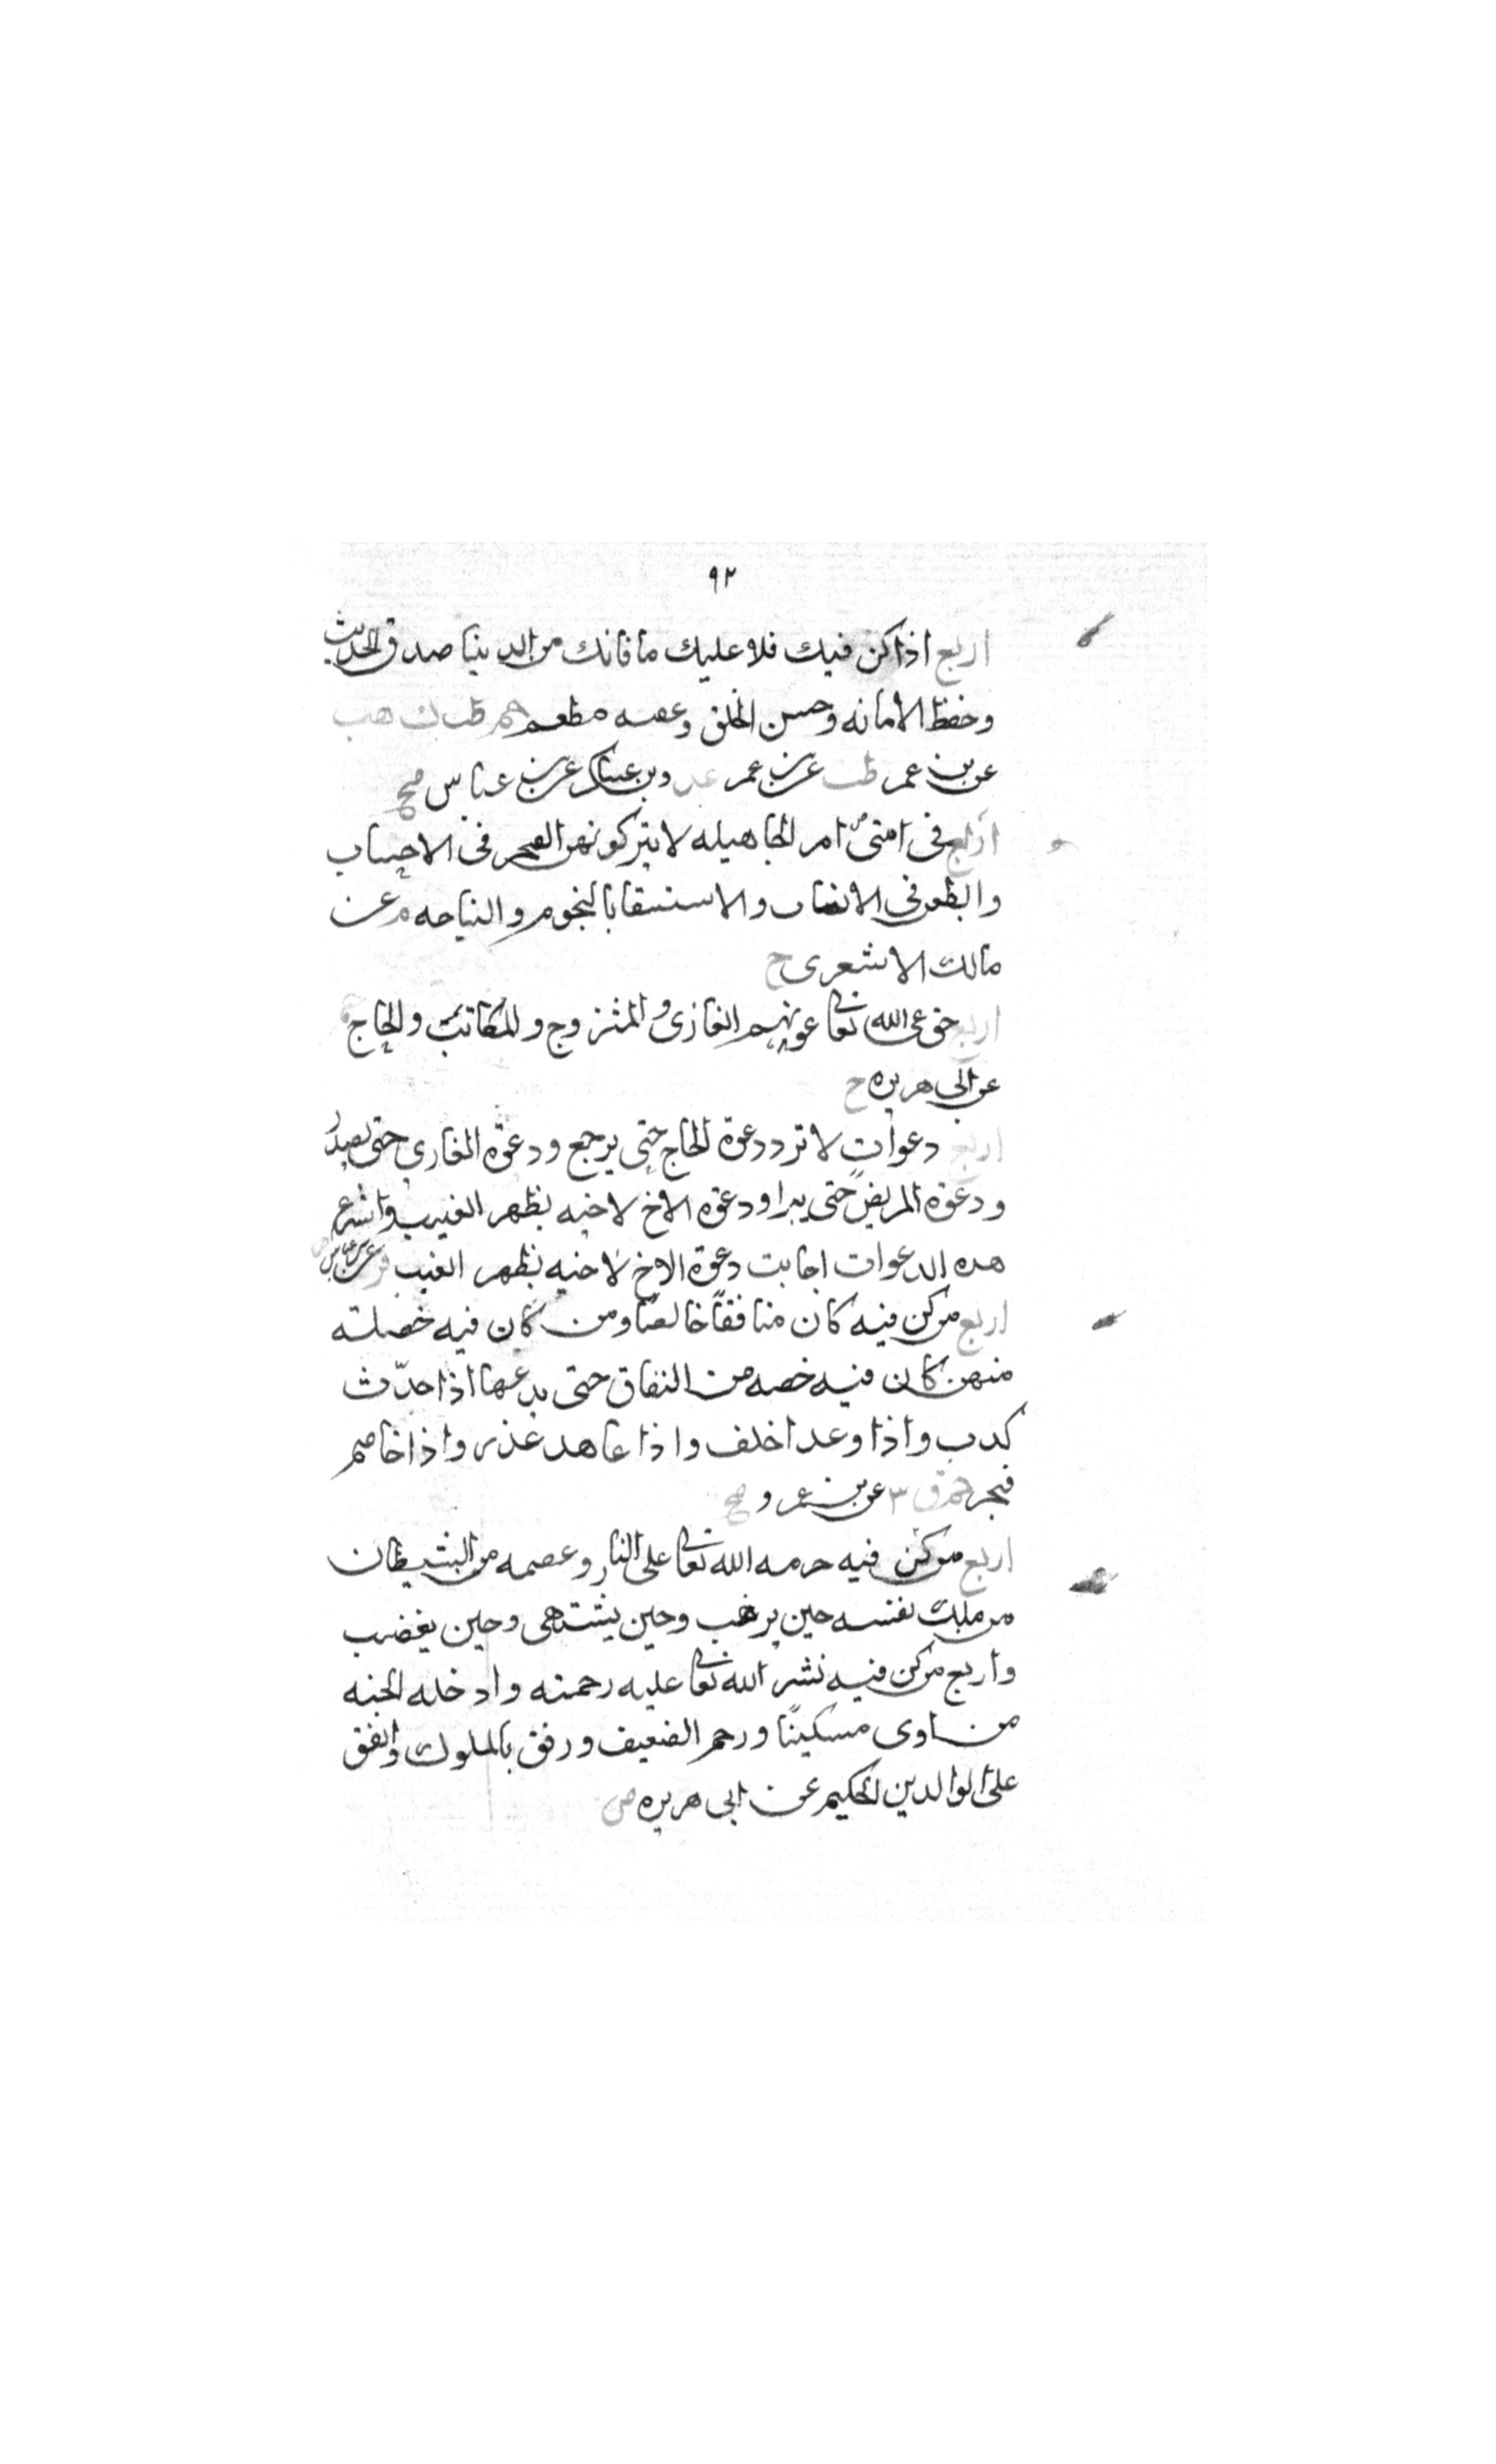 ٩٢
اربع اذا كن فيك فلا عليك ما فاتك من الدنيا صدق الحديث
وحفظ الامانه وحسن الخلق وعفه مطعم حم طب ك هب
عن بن عمر طب عن بن عمر عد وبن عساكر عن بن عباس صح
اربع فى امتى من امر الجاهيله لا يتركونهن الفخر فى الاحساب
والطعن فى الانساب والاستسقا بالنجوم والنياحه م عن
مالك الاشعرى ح
اربع حق على الله تعالى عونهم الغازى والمتزوج والمكاتب والحاج
عن ابى هريره ح
اربع دعوات لا ترد دعوة الحاج حتى يرجع ودعوة الغازى حتى يصدر
ودعوة المريض حتى يبرا ودعوه الاخ لاخيه بظهر الغيب واسرع
هده الدعوات اجابت دعوة الاخ لاخيه بظهر الغيب فر عن بن عباس
اربع من كن فيه كان منافقاً خالصاً ومن كان فيه خصلته
منهن كان فيه خصه من النفاق حتى يدعها اذا حدّث
كدب واذا وعد اخلف واذا عاهد غذر واذا خاصم
فجر حم ق ٣ عن بن عمرو صح
اربع من كن فيه حرمه الله تعالى على النار وعصمه من الشيطان
من ملك نفسه حين يرغب وحين يشتهى وحين يغضب
واربع من كن فيه نشر الله تعالى عليه رحمته وادخله الجنه
من اوى مسكينًا ورحم الضعيف ورفق بالملوك وانفق
على الوالدين الحكيم عن ابى هريره ض